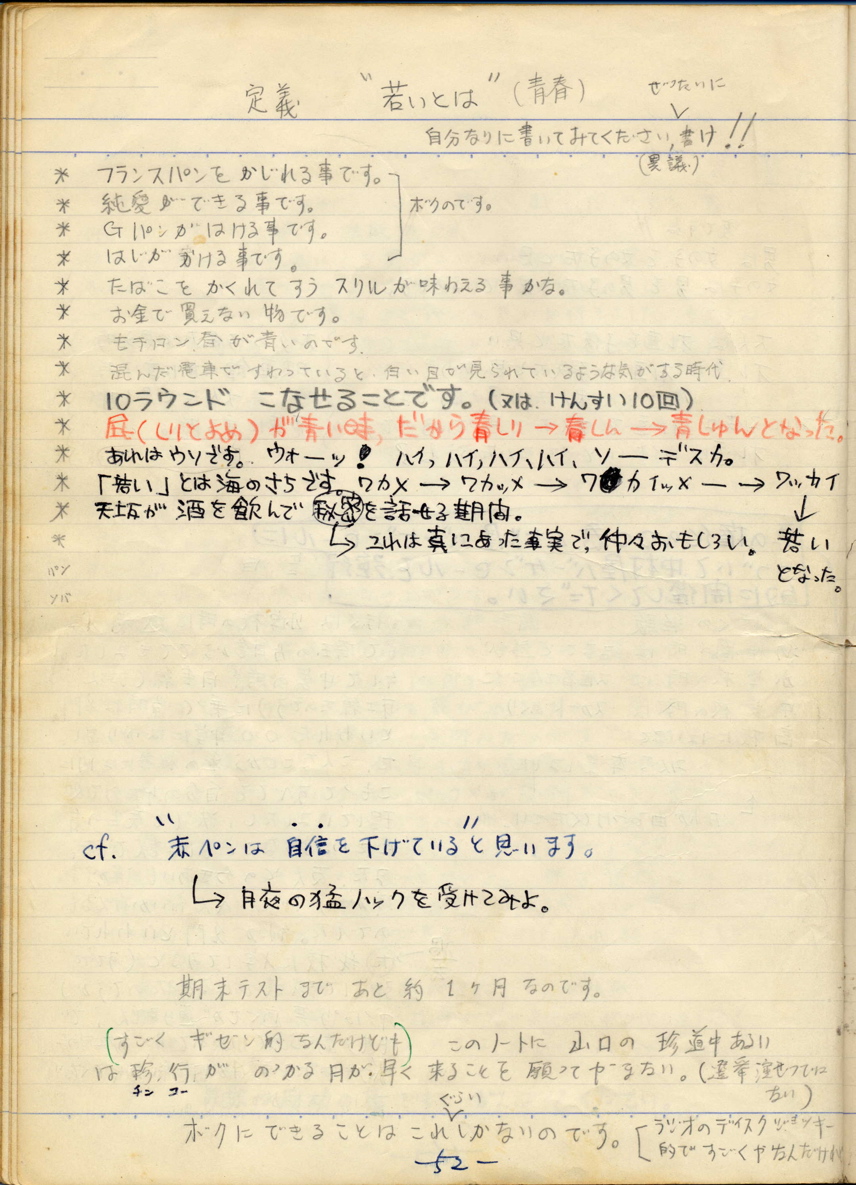 定義 “若いとは” (青春)
ぜったいに
自分なりに書いてみてください,書け!!
(異議)
* フランスパンを かじれる事です。
* 純愛が できる事です。
ボクのです。
* Gパンが はける事です。
* はじが かける事です。
* たばこを かくれて すう スリルが味わえる 事かな。
* お金で 買えない 物です。
* モチロン 春が青いのです
* 混んだ電車で すわっていると、白い目が見られているような気がする時代
* 10ラウンド こなせることです。(又は、けんすい10回)
* 尻(しりとよめ)が青い時, だから青しり → 青しん → 青しゅんとなった。
* あれはウソです。 ウォーッ! ハイッ,ハイッ,ハイ,ハイ、 ソーデスカ。
* 「若い」とは海のさちです。ワカメ → ワカッメ → ワカイッメ → ワッカイ
* 天坂が 酒を飲んで 秘密を話せる期間。
↓
* ↳ これは真にあった事実で, 仲々おもしろい。 若い
パン となった。
ソバ
cf. “赤ペンは 自信を下げている”と思います。
↳ 月夜の猛ノックを受けてみよ。
期末テストまで あと 約 1ヶ月なのです。
(すごく ギゼン的なんだけども) このノートに 山口の 珍道中あるい
は 珍行が のっかる 日が 早く 来ることを 願ってやまない。
チン コー
ない)
ぐらい
ボクに できることは これしかないのです。
[ラジオのディスクジョッキー
的で すごくヤなんだけれ
-52-